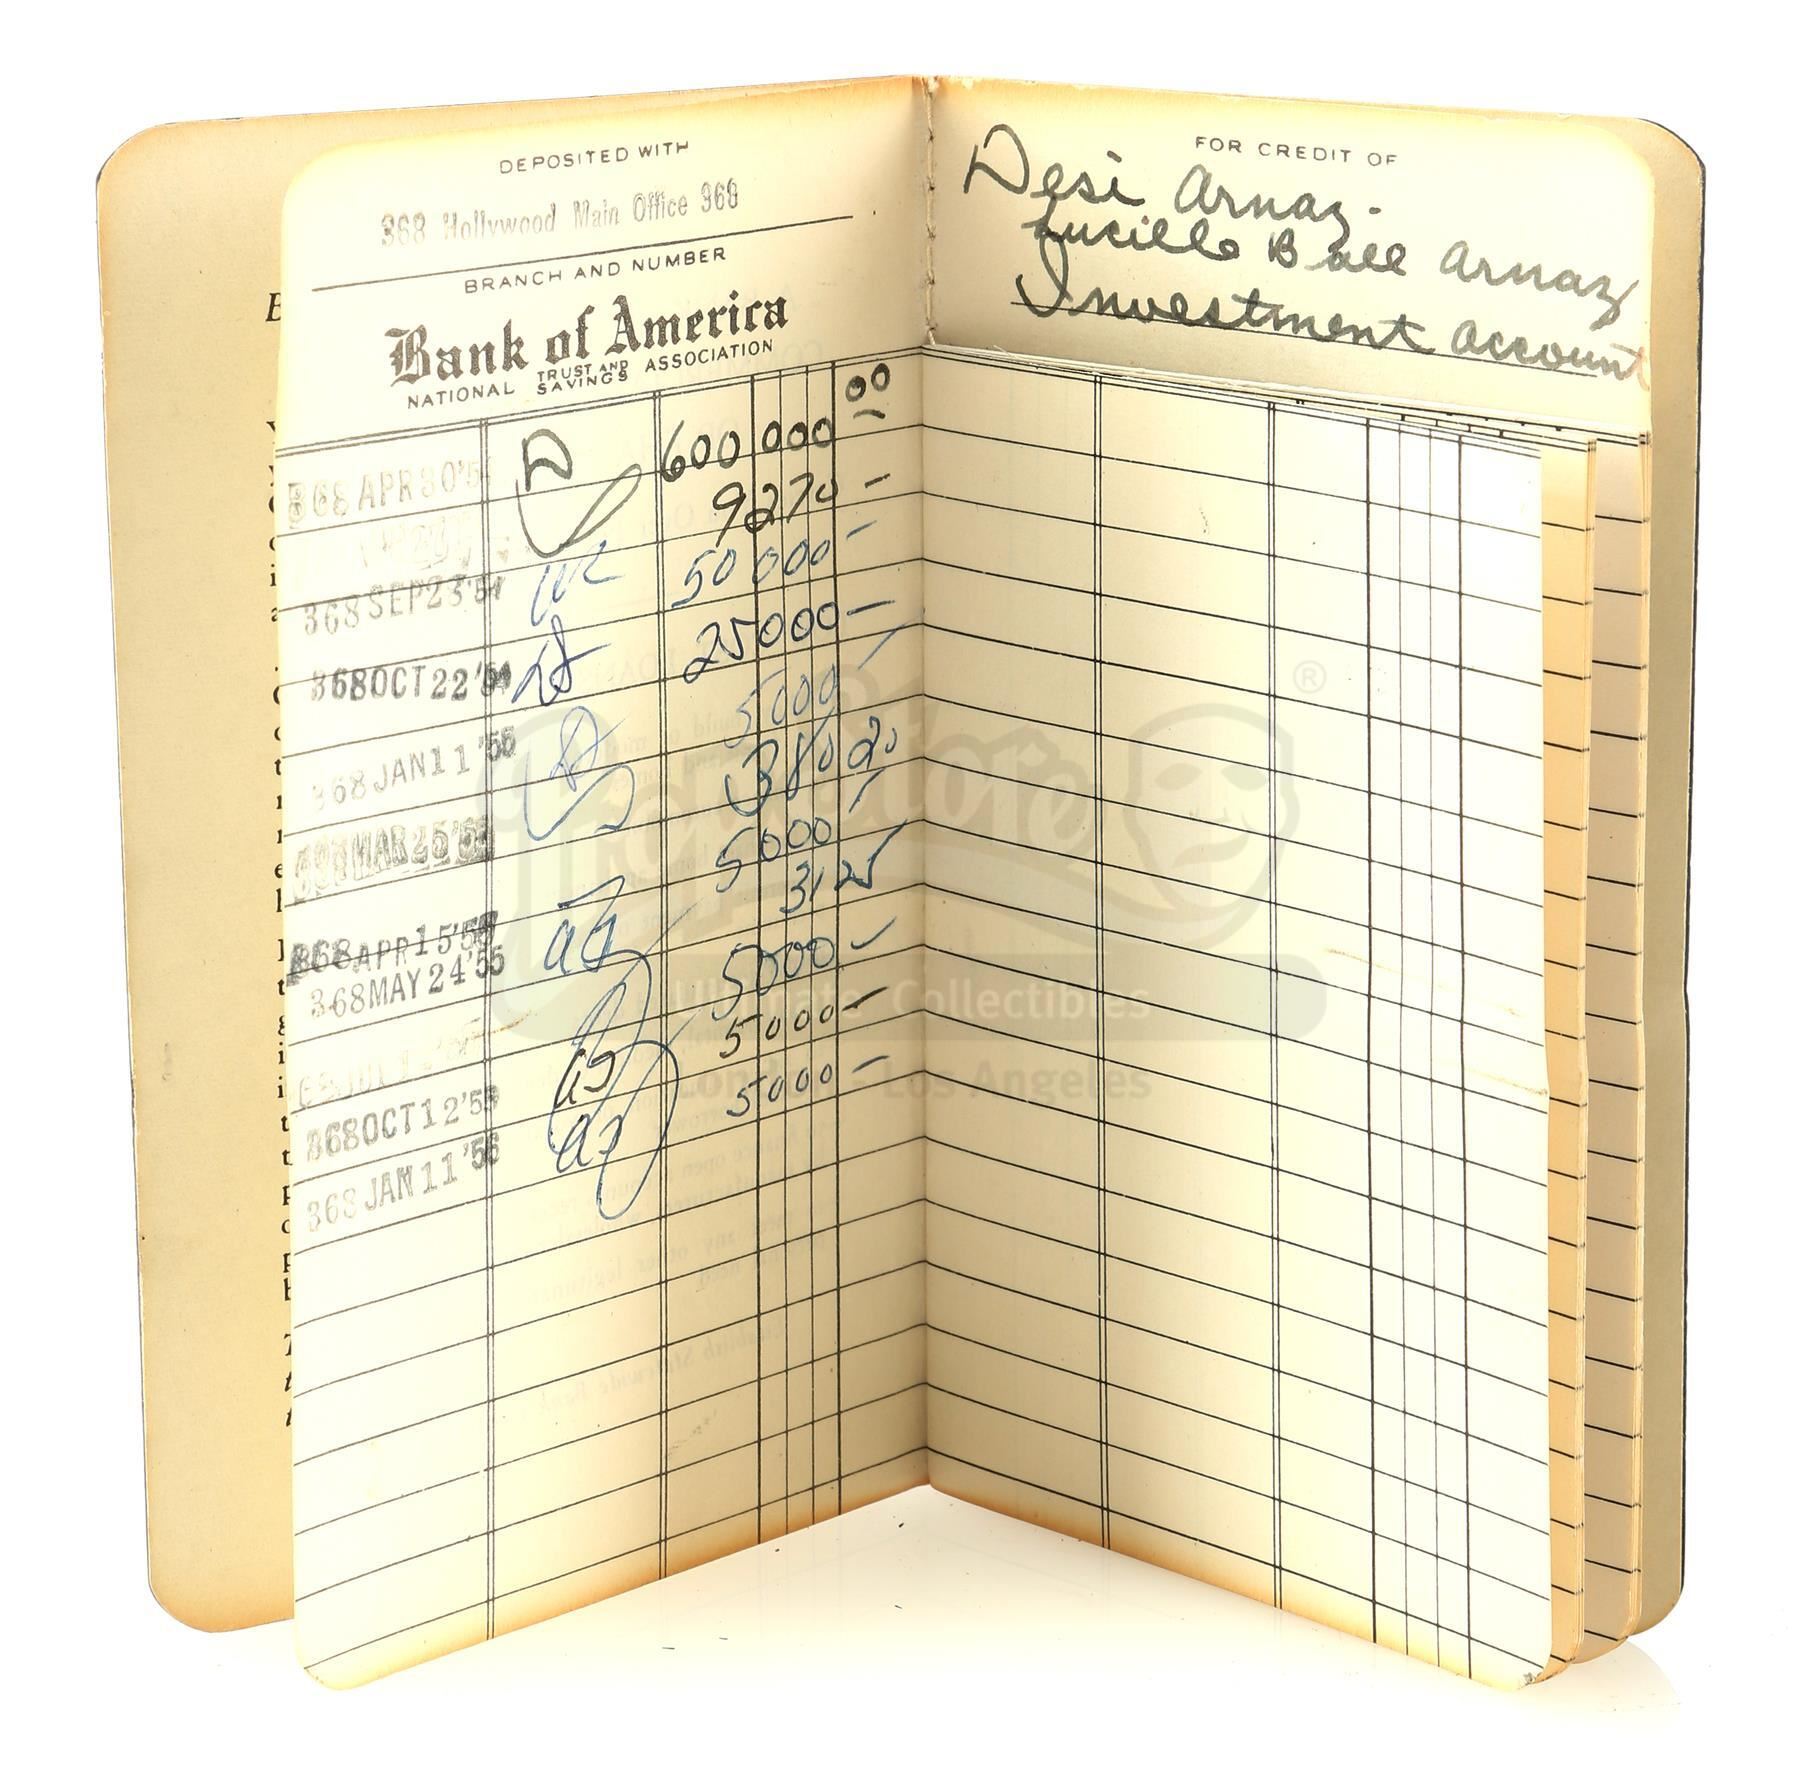 DEPOSITED WITH
368 Hollywood Main Office 368
BRANCH AND NUMBER
Bank of America
NATIONAL TRUST AND SAVINGS ASSOCIATION
368 APR 30 '5 D 600 000 00
9270 -
368 SEP 23 '54 50 000 -
368 OCT 22 '54 25000 -
368 JAN 11 '55 5000 -
MAR 25 '55 380
368 APR 15 '55 5000
368 MAY 24 '55 31 25
JUL 1 5000 -
368 OCT 12 '55 5000 -
368 JAN 11 '56 5000 -
FOR CREDIT OF
Desi Arnaz -
Lucille Ball Arnaz
Investment Account
®
Ultimate Collectibles
London - Los Angeles